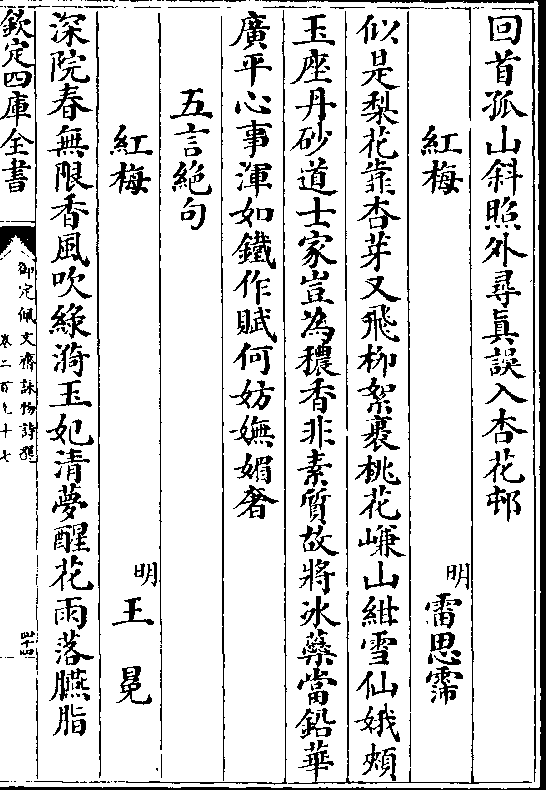 回首孤山斜照外尋真誤入杏花邨
紅梅 明 雷思霈
似是梨花靠杏芽又飛柳絮裹桃花㟻山紺雪仙娥頰
玉座丹砂道士家豈為穠香非素質故將冰蘂當鉛華
廣平心事渾如鐵作賦何妨嫵媚奢
五言絶句
紅梅 明 王冕
深院春無限香風吹綠漪玉妃清夢醒花雨落臙脂
欽定四庫全書
御定佩文齋詠物詩選
卷二百九十七
四十四